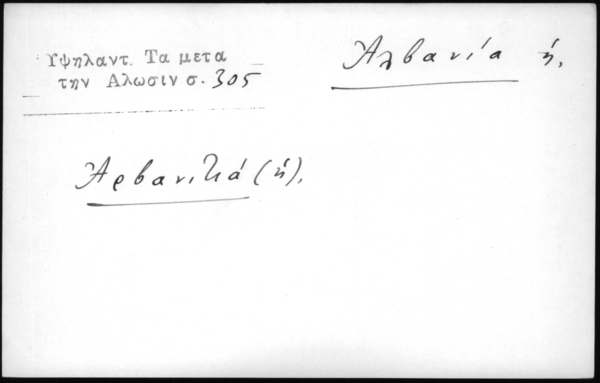 Υψηλαντ. Τα μετα
την Αλωσιν σ. 305
Ἀλβανία ἡ.
Ἀρβανιτιά (ἡ).